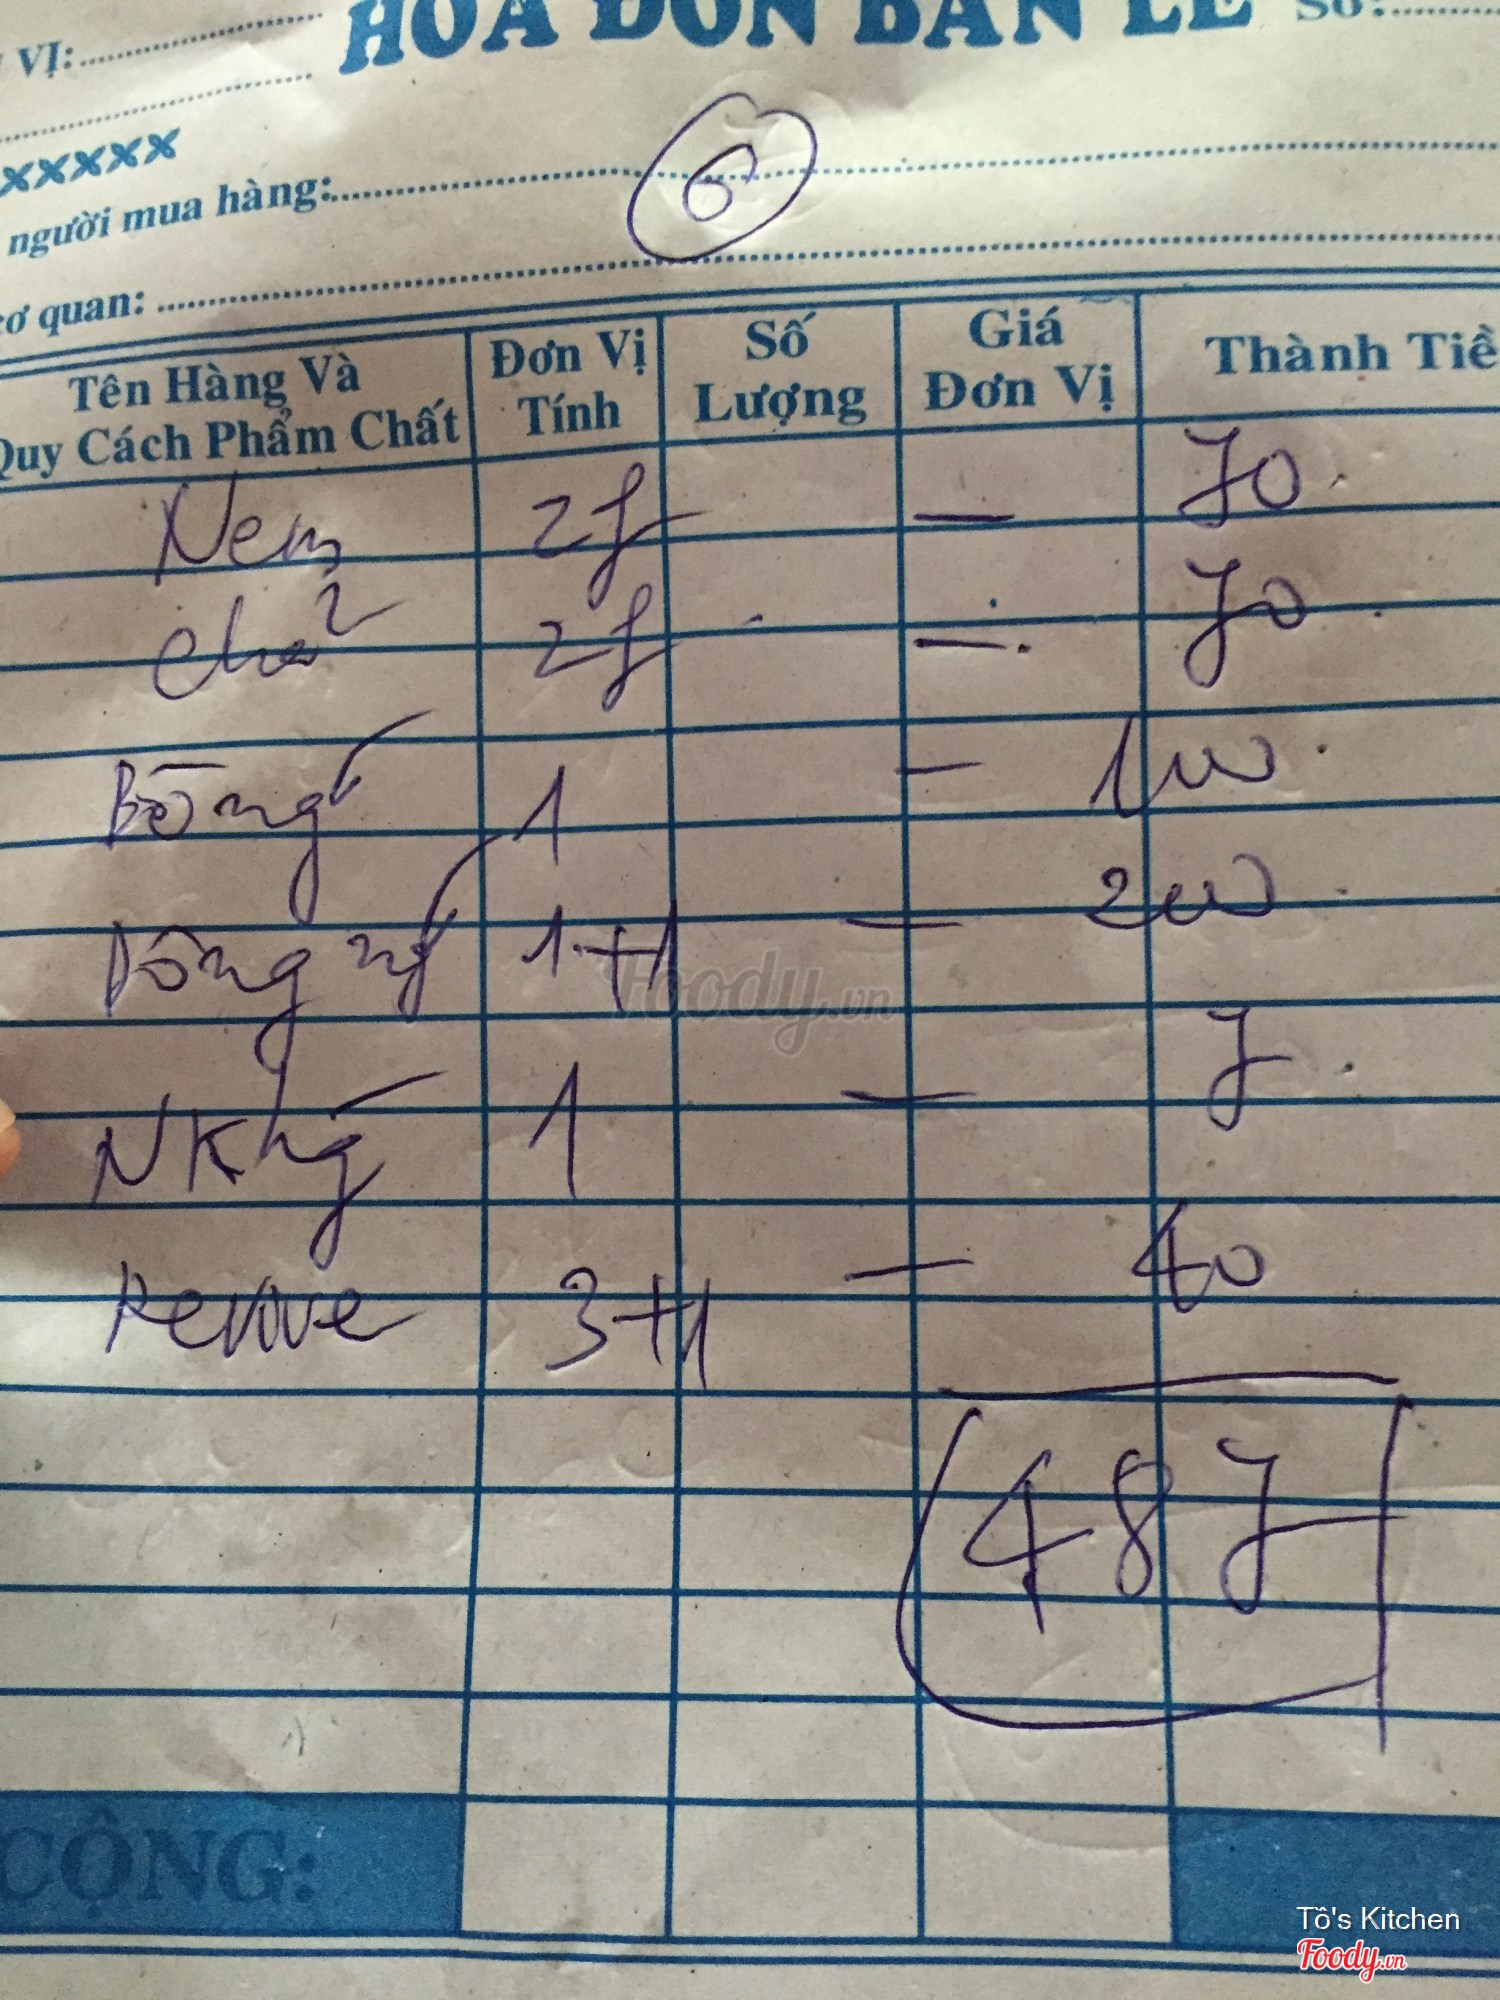 VỊ:
HÓA ĐƠN BÁN LẺ
Số:
×××××
người mua hàng:
6
cơ quan:
Tên Hàng Và Quy Cách Phẩm Chất
Đơn Vị Tính
Số Lượng
Giá Đơn Vị
Thành Tiề
Nem 2f — 70.
chả 2f — 70.
1 — 100.
1+1 — 200.
1 — 7.
Revive 3+1 — 40
487
CỘNG:
Foody.vn
Tô's Kitchen
Foody.vn